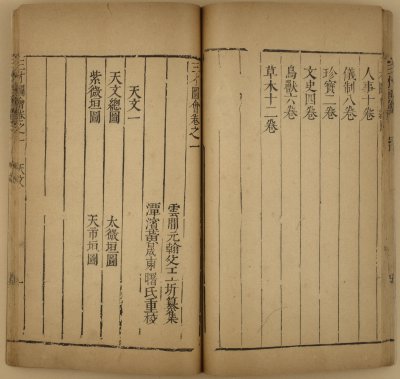 人事十卷
儀制八卷
珍寶二卷
文史四卷
鳥獸六卷
草木十二卷
三才圖會卷之一
雲間元翰父王圻纂集
潭濱黃晟東曙氏重校
天文一
天文總圖
太微垣圖
紫微垣圖
天市垣圖
三才圖會卷之一
天文
一